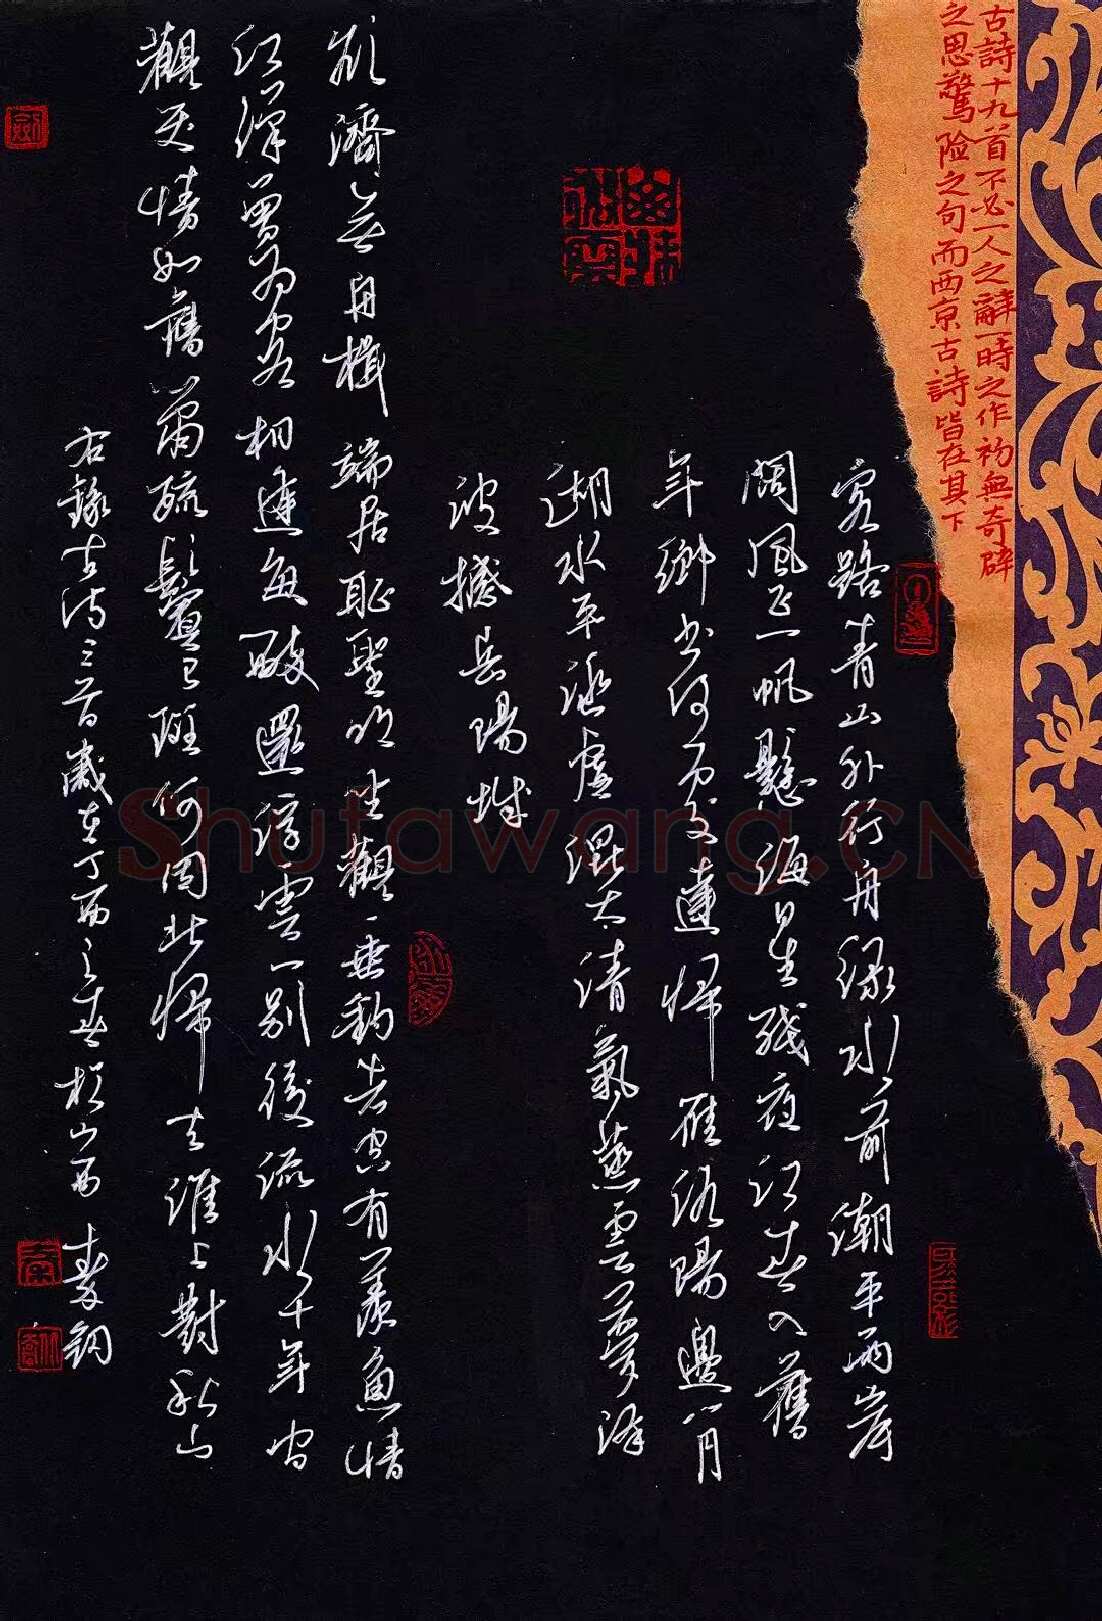 古詩十九首不必一人之辭一時之作初無奇辟
之思驚险之句而西京古詩皆在其下
客路青山外行舟绿水前潮平兩岸
阔風正一帆懸海日生残夜江春入舊
年鄉书何處達歸雁洛陽邊八月
湖水平涵虚混太清氣蒸雲夢澤
波撼岳陽城
欲濟無舟楫端居耻聖明坐觀垂釣者空有羡魚情
江漢曾为客相逢每醉還浮雲一别後流水十年间
觀笑情如舊萧疏鬢已斑何因北歸去淮上對秋山
右録古诗三首歲在丁酉之春於山西
Shufawang.CN